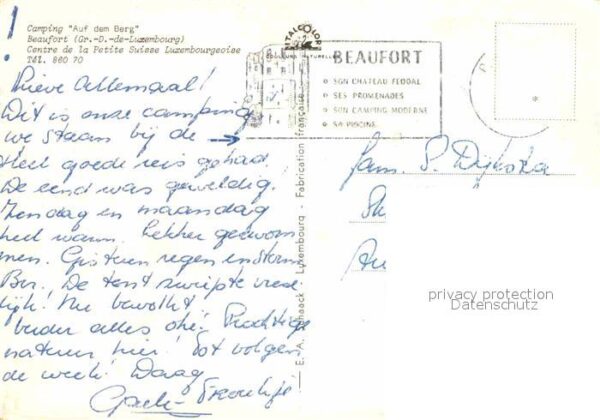 Camping "Auf dem Berg"
Beaufort (Gr.-D.-de-Luxembourg)
Centre de la Petite Suisse Luxembourgeoise
Tél. 860 70
ITALCOLOR
COULEURS NATURELLES
BEAUFORT
SON CHATEAU FEODAL
SES PROMENADES
SON CAMPING MODERNE
SA PISCINE
Lieve Allemaal!
Dit is onze camping
we staan bij de →
Heel goede reis gehad.
De eend was geweldig!
Zondag en maandag
heel warm. Lekker gezwom-
men. Gisteren regen en storm
Brr. De tent zwiepte vree-
lijk! Nu bewolkt,
verder alles oké! Prachtige
natuur hier! Tot volgen-
de week! Daag
Fam. S. Dijkstra
E. A. Schaack - Luxembourg - Fabrication française
privacy protection
Datenschutz